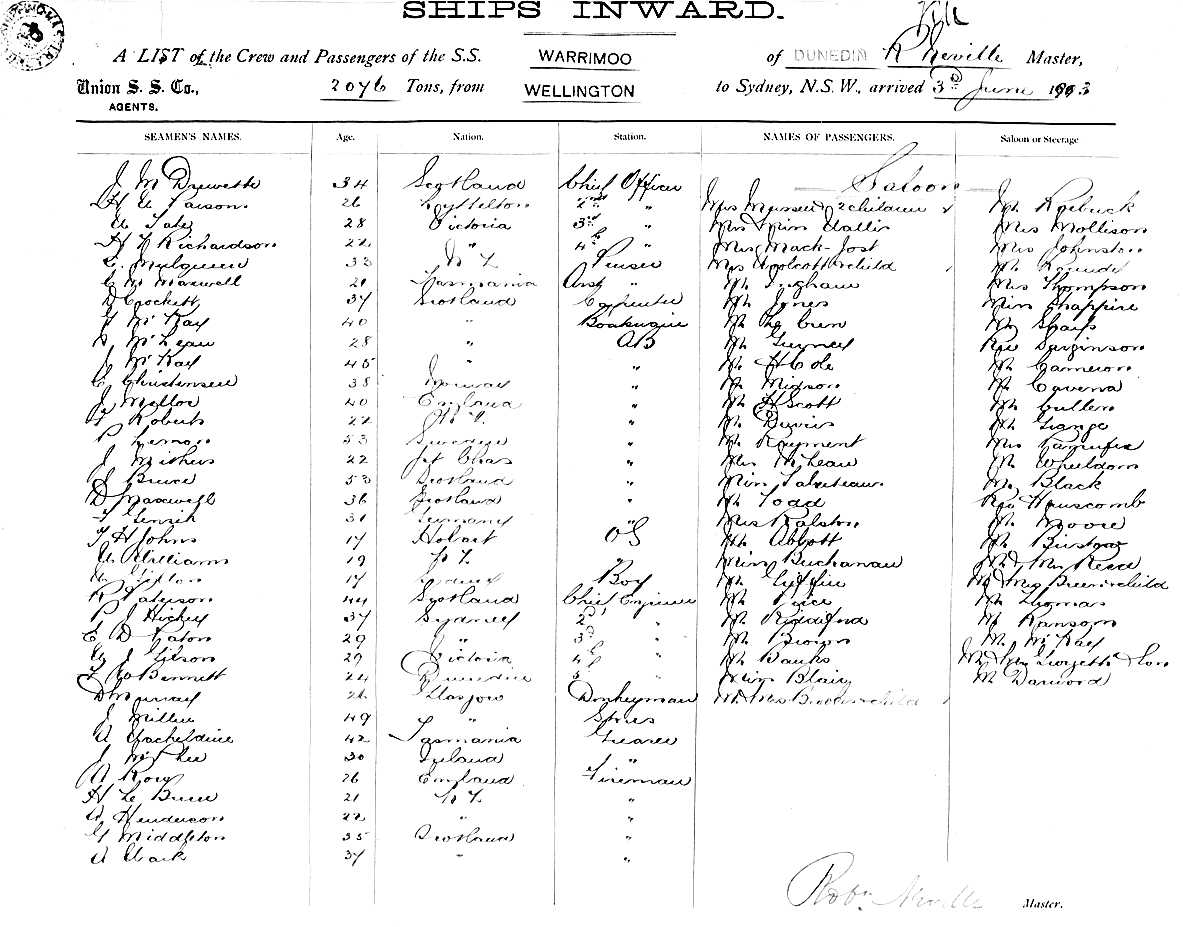 SHIPS INWARD.
A LIST of the Crew and Passengers of the S.S. WARRIMOO of DUNEDIN R Neville Master,
Union S. S. Co., AGENTS. 2076 Tons, from WELLINGTON to Sydney, N.S.W., arrived 3rd June 1903
SEAMEN'S NAMES. Age. Nation. Station. NAMES OF PASSENGERS. Saloon or Steerage
Saloon
J M Drewette 34 Scotland Chief Officer
26 Lyttelton 2nd " Mrs 2 children Mr Roebuck
28 Victoria 3rd " Mrs Miss Mrs Mollison
Richardson 22 " 4th " Mrs Mack-Jost Mrs Johnston
Mulqueen 33 N Z Purser Mrs Wolcott child Mr
Maxwell 21 Tasmania Asst " Mr Ingham Mrs Thompson
D Crockett 37 Scotland Carpenter Mr Jones Miss Chappire
McKay 40 " Mr Le Cren Mr Sharp
McLean 28 " AB Mr Gurney Rev Sarginson
J McKay 45 " " Mr H Cole Mr Cameron
C Christensen 38 Norway " Mr Migson Mr
J Mellor 40 England " Mr H Scott Mr Cullen
Roberts 22 N Z. " Mr Davies Mr Lange
53 " Mr Rayment Mrs
J Mithers 22 " Mrs McLean Mr Wheeldon
J Bruce 53 Scotland " Miss Mr Black
D Maxwell 36 Scotland " Mr Todd Rev
31 Germany " Mrs Ralston Mr Moore
T H Johns 17 Hobart OS Mr Abbott Mr Bristow
A Williams 19 N Z. " Miss Buchanan Mr & Mrs Reid
17 Sydney Boy Mr Mr & Mrs child
R Paterson 44 Scotland Chief Engineer Mr Price Mr Thomas
P J Hickey 37 Sydney 2nd " Mr Riddiford Mr Ransom
E D Eaton 29 " 3rd " Mr Brown Mr McKay
J Gibson 29 Victoria 4th " Mr Banks Mr & Mrs Georgetti & Son
Bennett 24 Dunedin 5 " Miss Blair Mr Darword
D Murray 26 Glasgow Donkeyman Mr Mrs child
J Miller 49 " Stores
42 Tasmania Greaser
J McPhee 30 Ireland "
A Rowe 26 England Fireman
H Le Bruce 21 N Z. "
A Henderson 22 " "
G Middleton 35 Scotland "
A Clark 37 " "
Robt Neville Master.